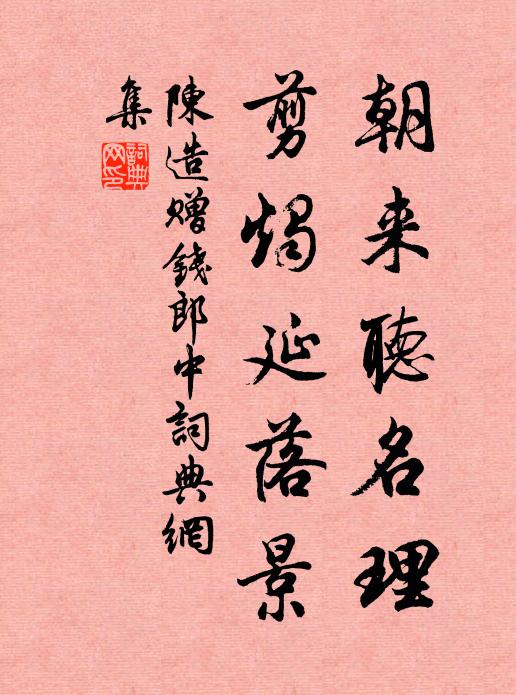 朝来聽名理
剪燭延落景
陳造贈錢郎中詞典網
集
詞典
网印